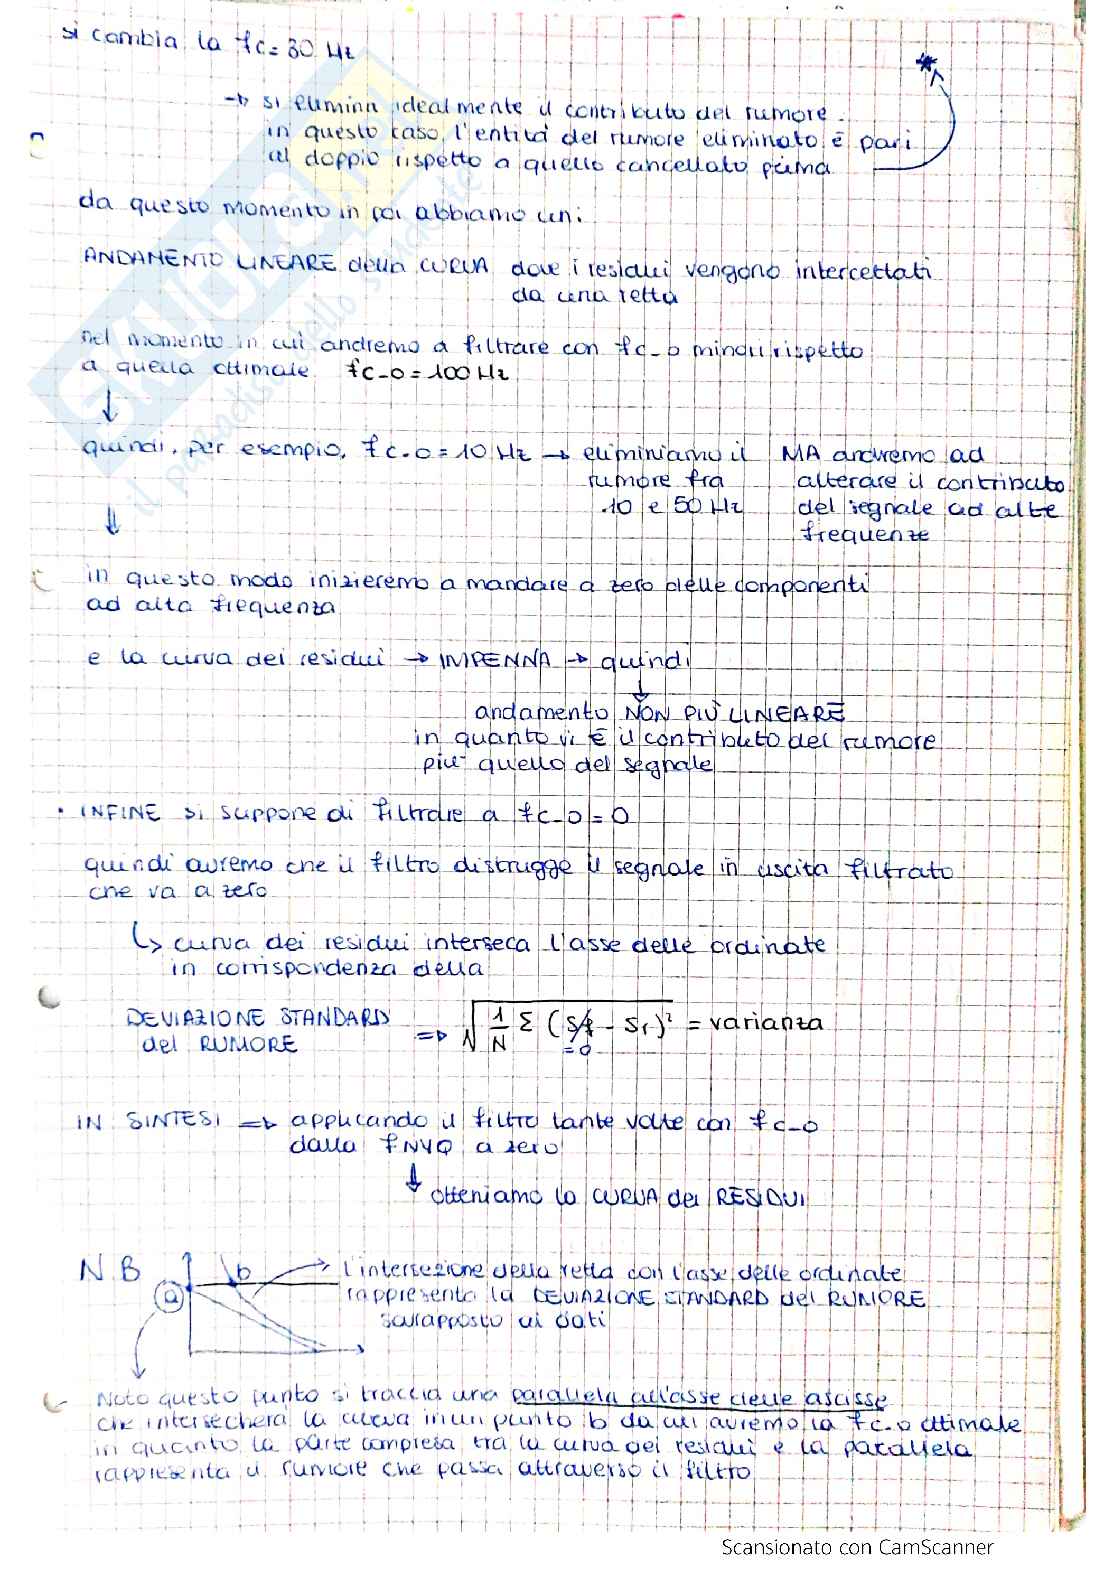 si cambia la fc = 30 Hz
→ si elimina idealmente il contributo del rumore.
in questo caso l'entità del rumore eliminato è pari
al doppio rispetto a quello cancellato prima
da questo momento in poi abbiamo un:
ANDAMENTO LINEARE della CURVA dove i residui vengono intercettati
da una retta
nel momento in cui andremo a filtrare con fc-o minori rispetto
a quella ottimale fc-o = 100 Hz
↓
quindi, per esempio, fc-o = 10 Hz → eliminiamo il MA andremo ad
rumore fra alterare il contributo
10 e 50 Hz del segnale ad alte
frequenze
⇓
in questo modo inizieremo a mandare a zero delle componenti
ad alta frequenza
e la curva dei residui → IMPENNA → quindi
↓
andamento NON PIÙ LINEARE
in quanto vi è il contributo del rumore
più quello del segnale
• INFINE si suppone di filtrare a fc-o = 0
quindi avremo che il filtro distrugge il segnale in uscita filtrato
che va a zero
↳ curva dei residui interseca l'asse delle ordinate
in corrispondenza della
DEVIAZIONE STANDARD ⇒ √ 1/N Σ (Sf - Sr)² = varianza
del RUMORE = 0
IN SINTESI ⇒ applicando il filtro tante volte con fc-o
dalla fNYQ a zero
↓ otteniamo la CURVA dei RESIDUI
N.B a b → l'intersezione della retta con l'asse delle ordinate
rappresenta la DEVIAZIONE STANDARD del RUMORE
sovrapposto ai dati
Noto questo punto si traccia una parallela all'asse delle ascisse
che intersecherà la curva in un punto b da cui avremo la fc-o ottimale
in quanto la parte compresa tra la curva dei residui e la parallela
rappresenta il rumore che passa attraverso il filtro
SKUOLA.net
il paradiso dello studente
Scansionato con CamScanner